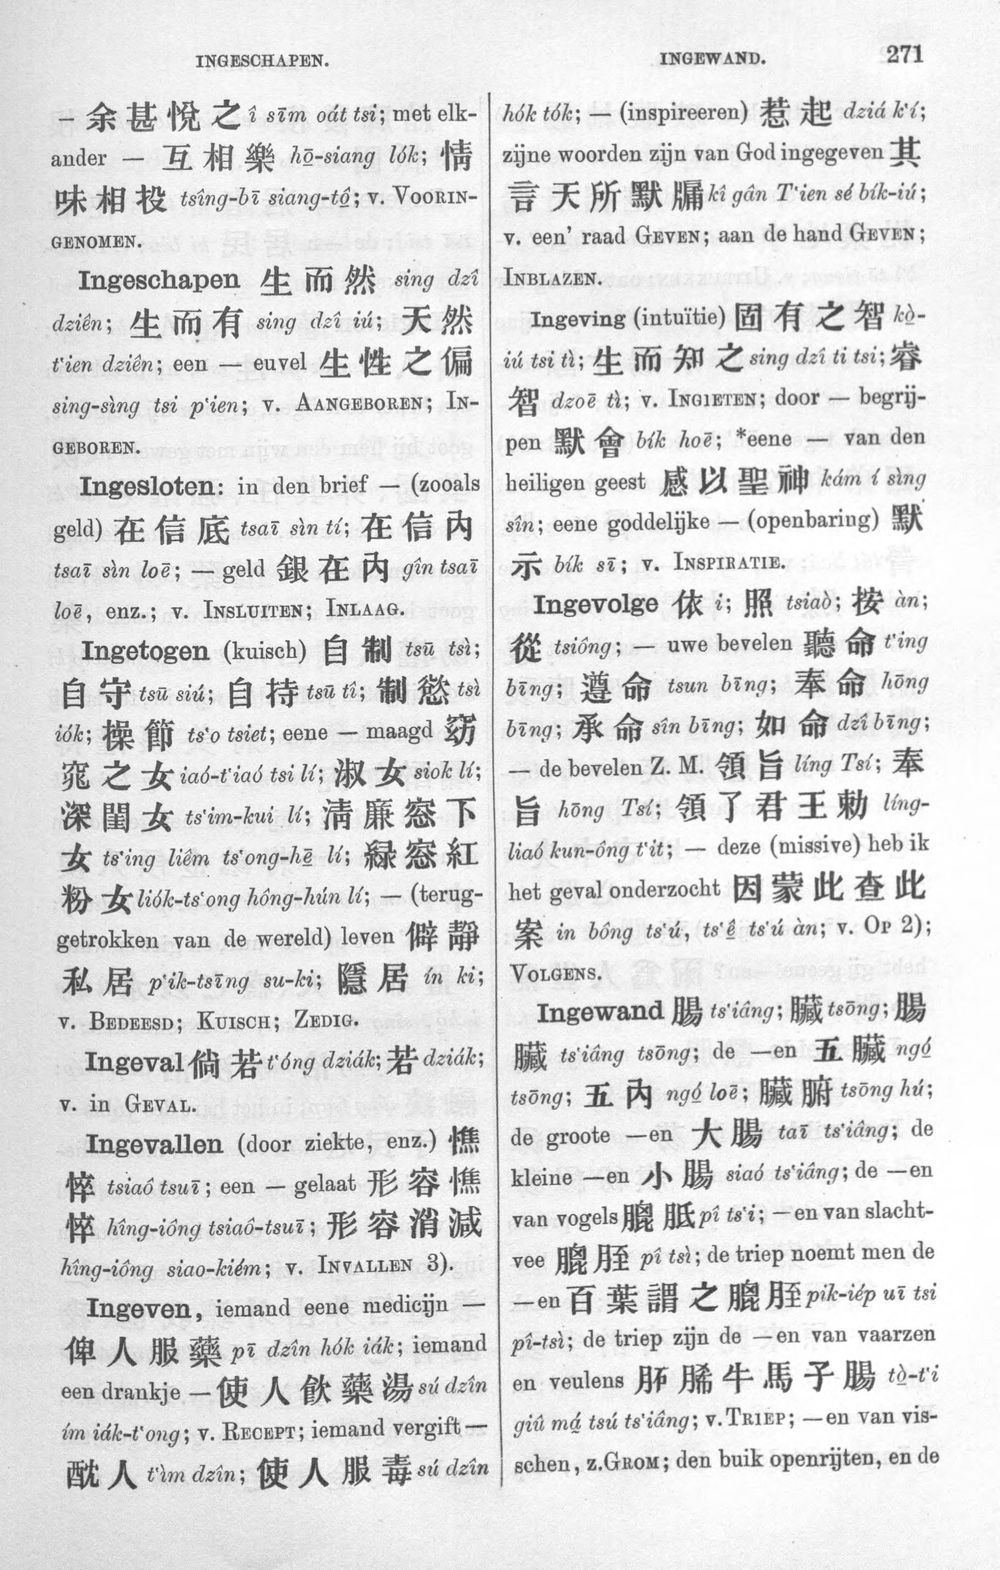 INGESCHAPEN.
INGEWAND.
271
– 余甚悅之 î sīm oát tsi; met elk-
ander — 互相樂 hō̱-siang lók; 情
味相投 tsîng-bī siang-tô̱; v. VOORIN-
GENOMEN.
Ingeschapen 生而然 sing dzî
dziên; 生而有 sing dzî iú; 天然
t‘ien dziên; een — euvel 生性之偏
sing-sìng tsi p‘ien; v. AANGEBOREN; IN-
GEBOREN.
Ingesloten: in den brief — (zooals
geld) 在信底 tsaī sìn tí; 在信內
tsaī sìn loē; — geld 銀在內 gîn tsaī
loē, enz.; v. INSLUITEN; INLAAG.
Ingetogen (kuisch) 自制 tsū tsì;
自守 tsū siú; 自持 tsū tî; 制慾 tsì
iók; 操節 ts‘o tsiet; eene — maagd 窈
窕之女 iaó-t‘iaó tsi lí; 淑女 siok lí;
深閨女 ts‘im-kui lí; 清廉窓下
女 ts‘ing liêm ts‘ong-hē̱ lí; 綠窓紅
粉女 liók-ts‘ong hông-hún lí; — (terug-
getrokken van de wereld) leven 僻靜
私居 p‘ik-tsīng su-ki; 隱居 ín ki;
v. BEDEESD; KUISCH; ZEDIG.
Ingeval 倘若 t‘óng dziák; 若 dziák;
v. in GEVAL.
Ingevallen (door ziekte, enz.) 憔
悴 tsiaô tsuī; een — gelaat 形容憔
悴 hîng-iông tsiaô-tsuī; 形容消減
hîng-iông siao-kiém; v. INVALLEN 3).
Ingeven, iemand eene medicijn —
俾人服藥 pī dzîn hók iák; iemand
een drankje — 使人飲藥湯 sú dzîn
ím iák-t‘ong; v. RECEPT; iemand vergift —
酖人 t‘ìm dzîn; 使人服毒 sú dzîn
hók tók; — (inspireeren) 惹起 dziá k‘í;
zijne woorden zijn van God ingegeven 其
言天所默牖 kî gân T‘ien sé bík-iú;
v. een' raad GEVEN; aan de hand GEVEN;
INBLAZEN.
Ingeving (intuïtie) 固有之智 kò̱-
iú tsi tì; 生而知之 sing dzî ti tsi; 睿
智 dzoē tì; v. INGIETEN; door — begrij-
pen 默會 bík hoē; *eene — van den
heiligen geest 感以聖神 kám í sìng
sîn; eene goddelijke — (openbaring) 默
示 bík sī; v. INSPIRATIE.
Ingevolge 依 i; 照 tsiaò; 按 àn;
從 tsiông; — uwe bevelen 聽命 t‘ing
bīng; 遵命 tsun bīng; 奉命 hōng
bīng; 承命 sîn bīng; 如命 dzî bīng;
— de bevelen Z. M. 領旨 líng Tsí; 奉
旨 hōng Tsí; 領了君王勅 líng-
liaó kun-ông t‘it; — deze (missive) heb ik
het geval onderzocht 因蒙此查此
案 in bông ts‘ú, ts‘ê̱ ts‘ú àn; v. OP 2);
VOLGENS.
Ingewand 腸 ts‘iâng; 臟 tsōng; 腸
臟 ts‘iâng tsōng; de —en 五臟 ngó̱
tsōng; 五內 ngó̱ loē; 臟腑 tsōng hú;
de groote —en 大腸 taī ts‘iâng; de
kleine —en 小腸 siaó ts‘iâng; de —en
van vogels 膍胵 pî ts‘i; —en van slacht-
vee 膍胵 pî tsì; de triep noemt men de
—en 百葉謂之膍胵 pik-iép uī tsi
pî-tsì; de triep zijn de —en van vaarzen
en veulens 牛馬子腸 tò̱-t‘i
giû má̱ tsú ts‘iâng; v. TRIEP; —en van vis-
schen, z. GROM; den buik openrijten, en de